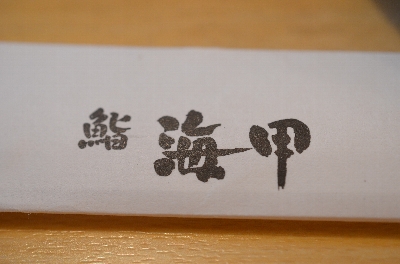 鮨 海甲